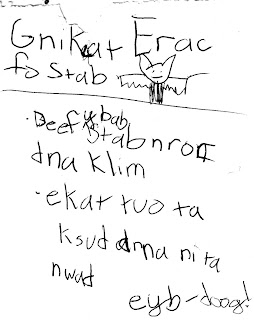 Gnikat Erac
fo Stab
· Deef ybab
Stab nroc
dna klim
· ekat tuo ta
ksud dna ni ta
nwad
eyb-doog!